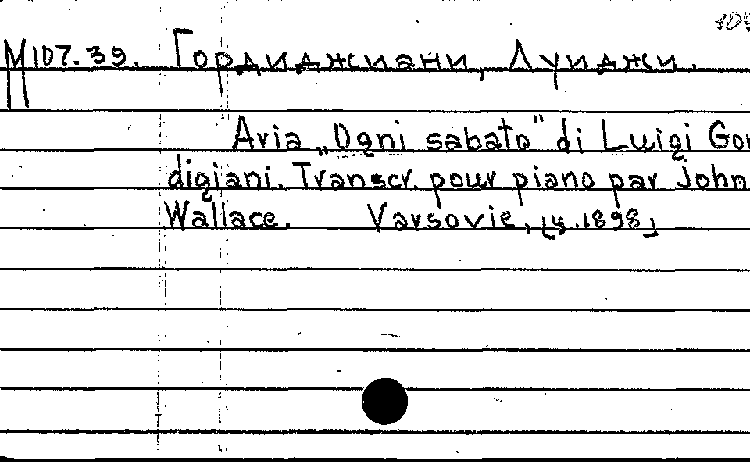 M107.39. Гордиджиани, Луиджи.
Aria „Ogni sabato" di Luigi Gor
digiani. Transcr. pour piano par John
Wallace. Varsovie,